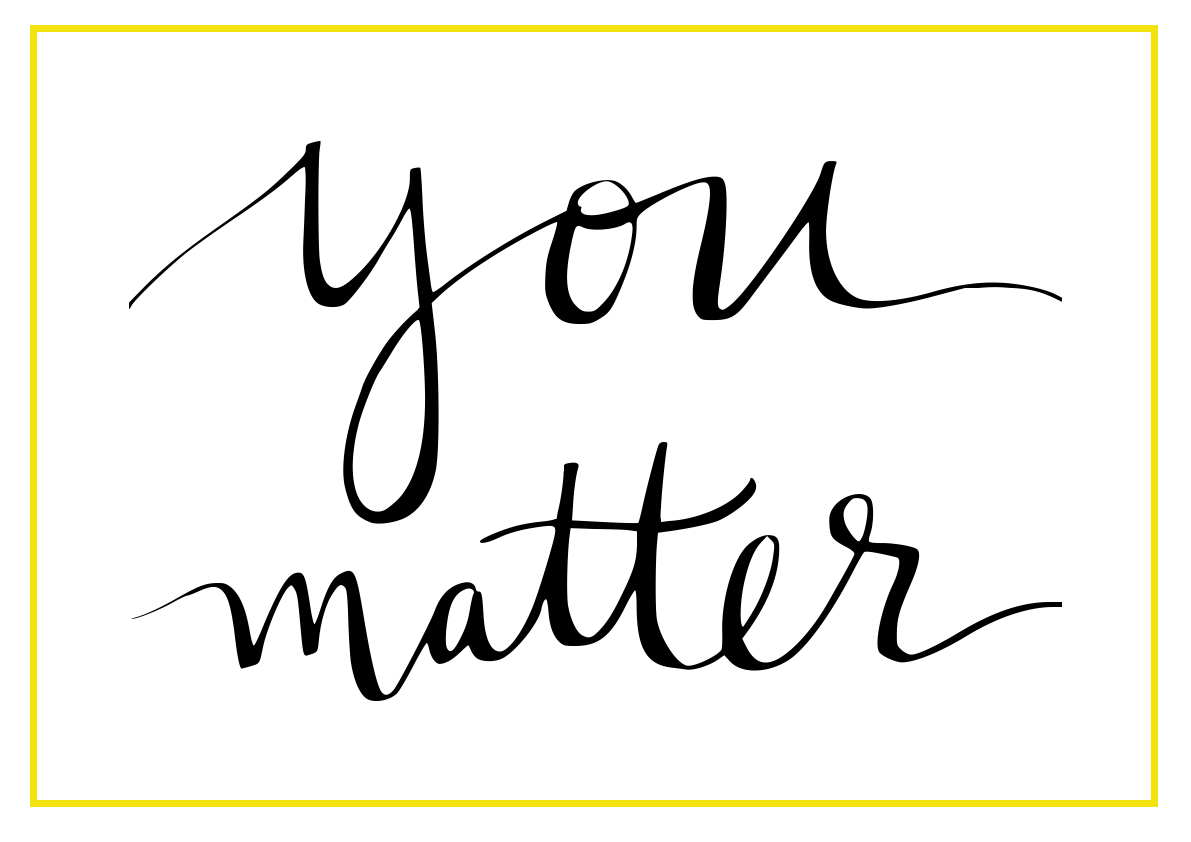 you
matter